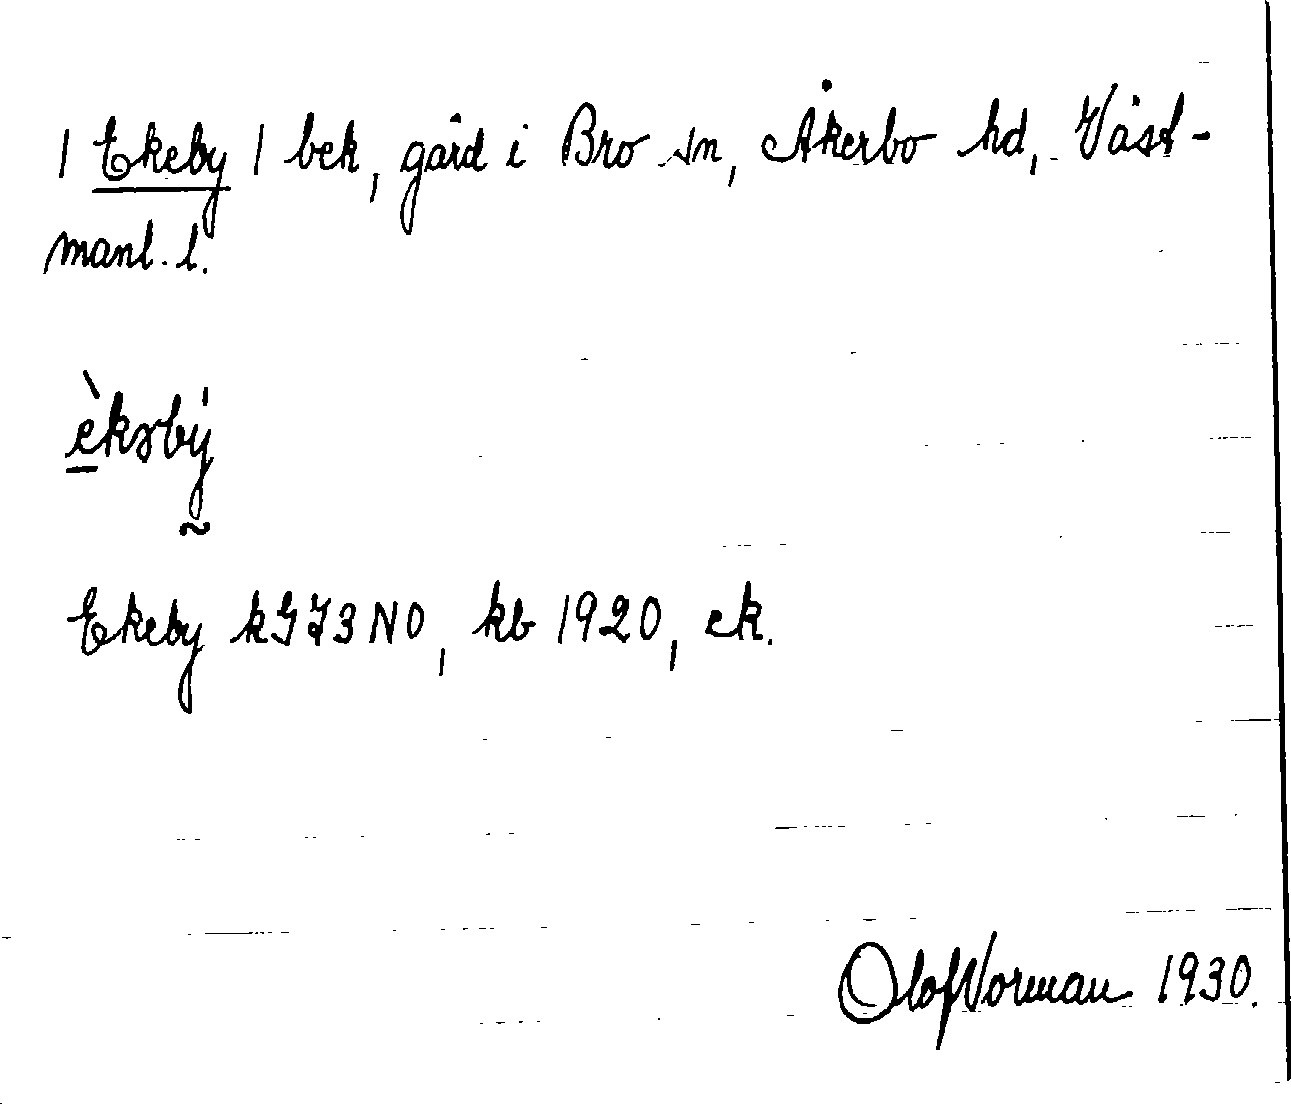 / Ekeby / bek, gård i Bro sn, Åkerbo hd, Väst-
manl. l.
èkəbý
Ekeby kGJ3NO, kb 1920, ek.
Olof Norman 1930.